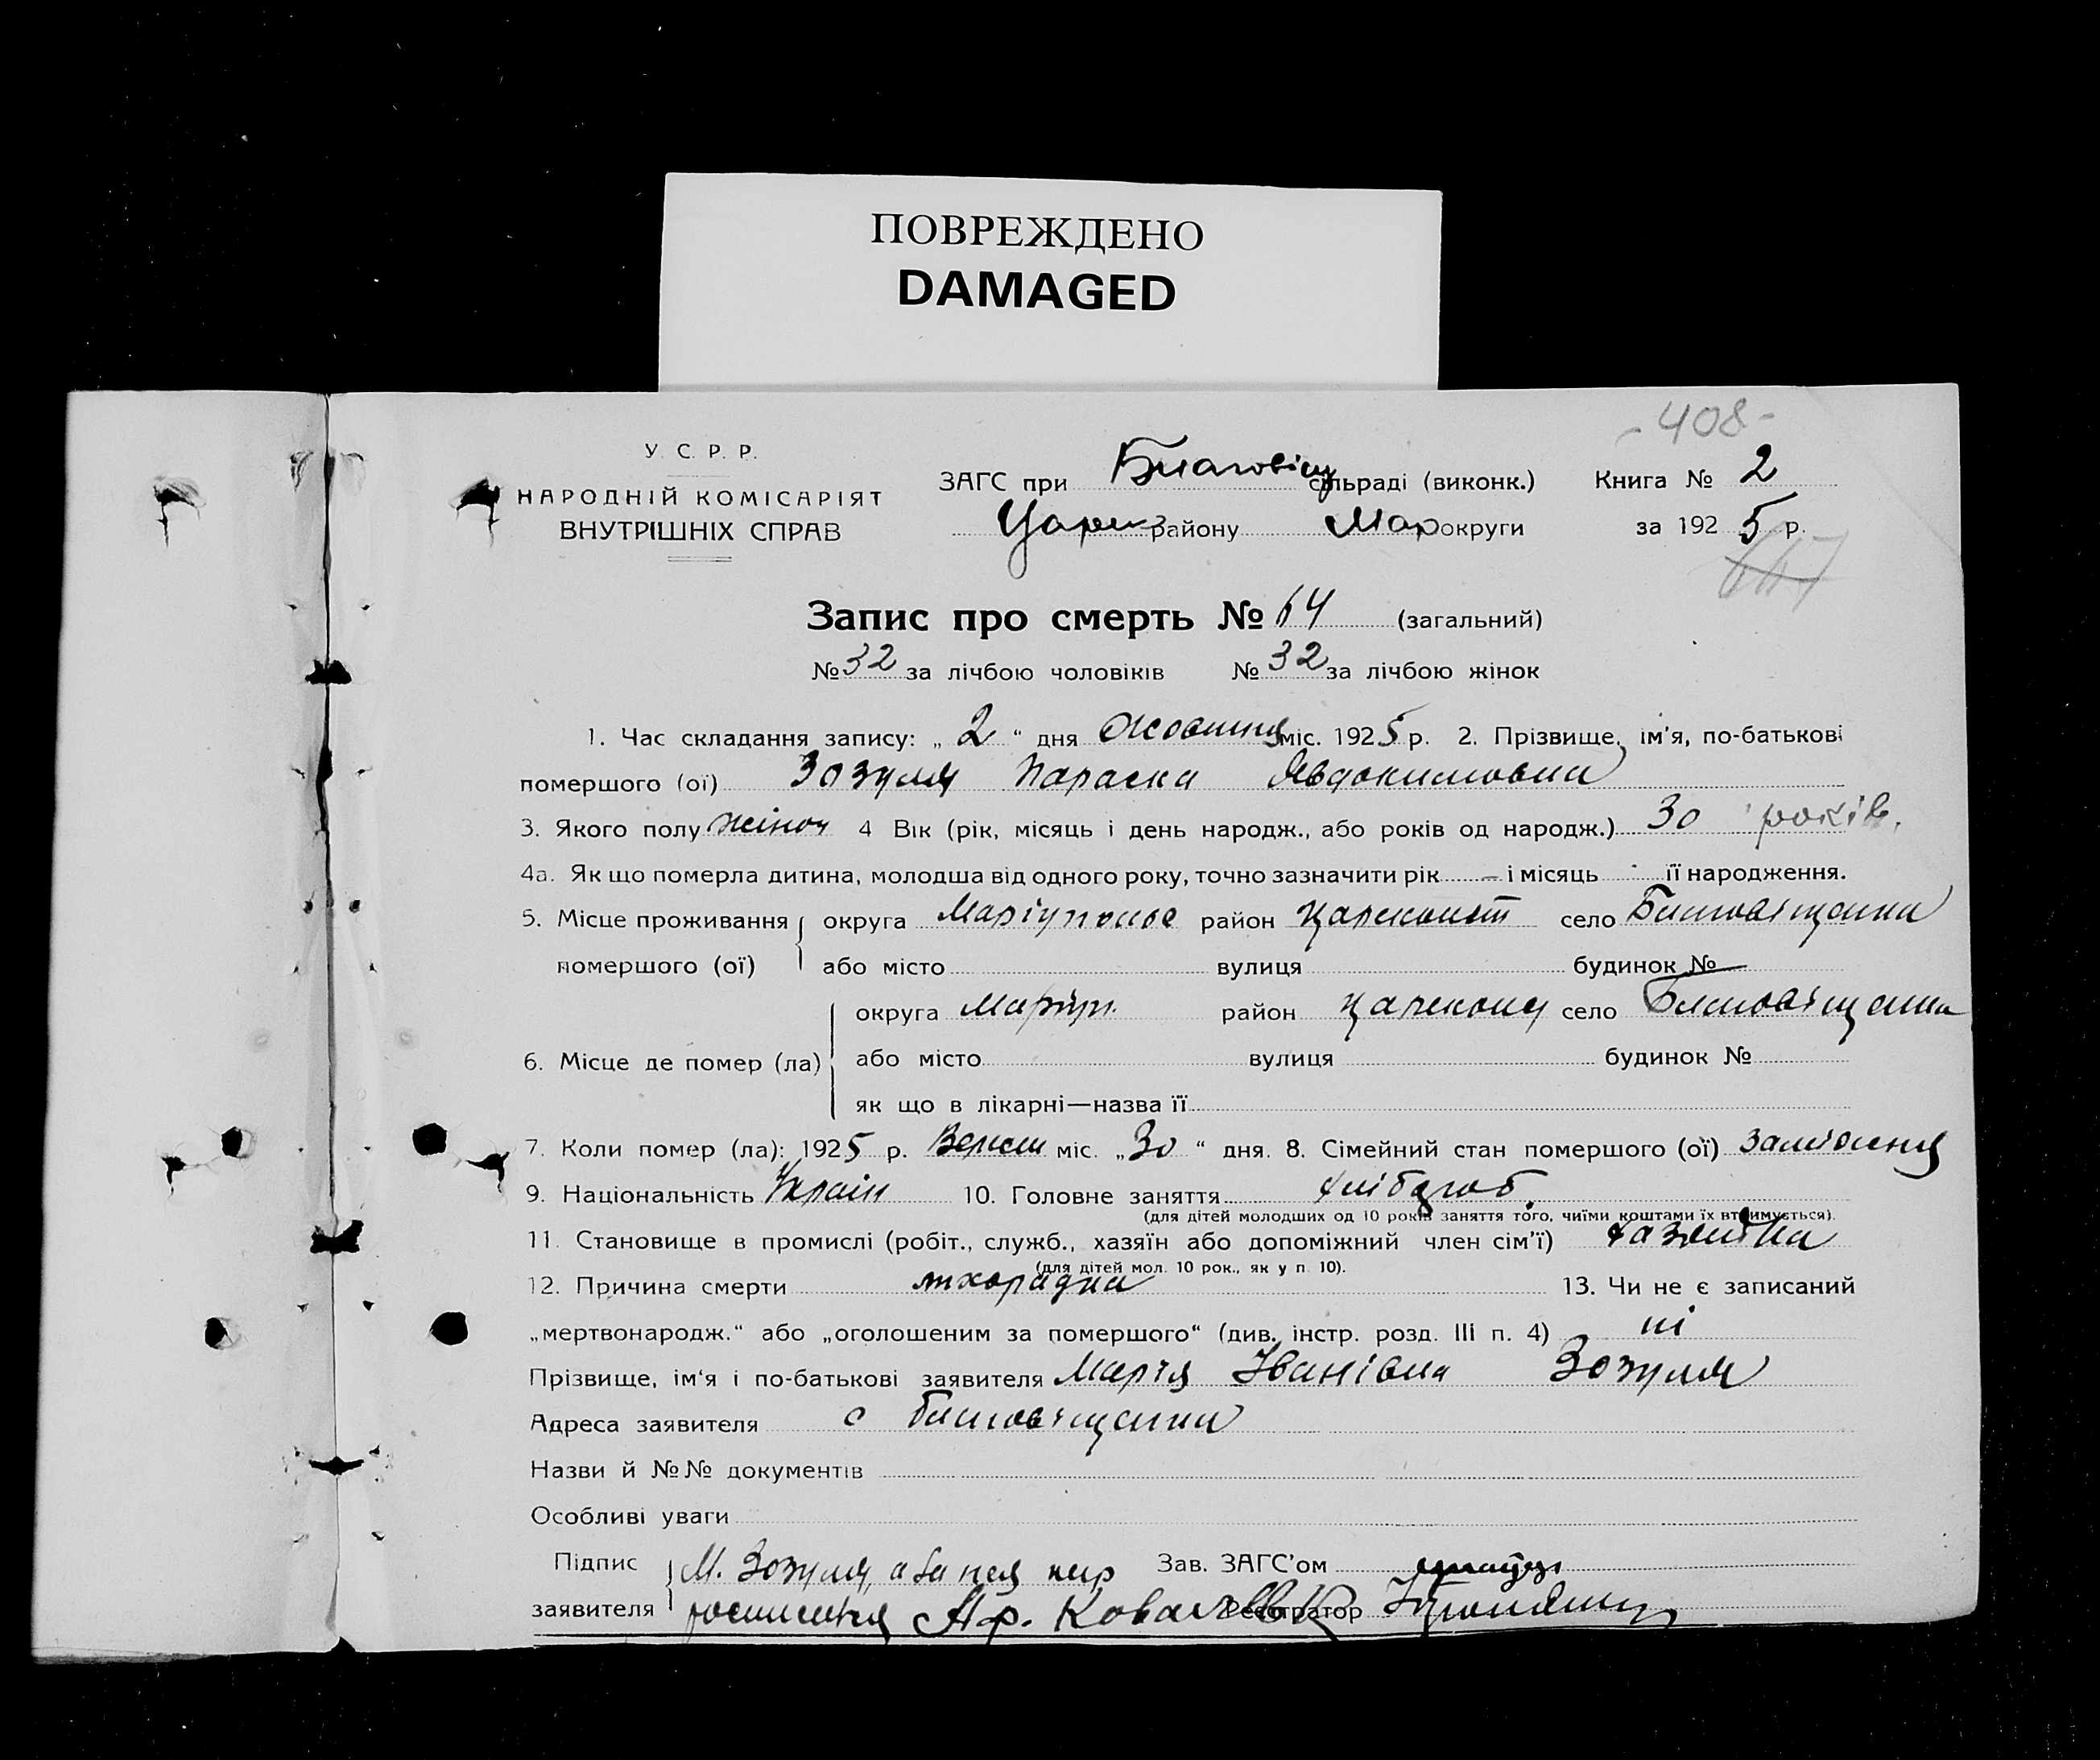 ПОВРЕЖДЕНО
DAMAGED
- 408 -
У. С. Р. Р.
НАРОДНІЙ КОМІСАРІЯТ
ВНУТРІШНІХ СПРАВ
ЗАГС при Благовіщ сільраді (виконк.) Книга № 2
Царек району Мар округи за 1925 р.
Запис про смерть № 64 (загальний)
№ 32 за лічбою чоловіків № 32 за лічбою жінок
1. Час складання запису: „ 2 “ дня Жовтня міс. 1925 р. 2. Прізвище, ім'я, по-батькові
помершого (ої) Зозуля Параска Явдокимовна
3. Якого полу жіноч 4 Вік (рік, місяць і день народж., або років од народж.) 30 років.
4а. Як що померла дитина, молодша від одного року, точно зазначити рік — і місяць - її народження.
5. Місце проживання округа Маріупольс район Царекост село Благовіщанка
помершого (ої) або місто вулиця будинок №
округа Маріуп. район Царекону село Благовіщанка
6. Місце де помер (ла) або місто вулиця будинок №
як що в лікарні—назва її
7. Коли помер (ла): 1925 р. Верес міс. „ 30 “ дня. 8. Сімейний стан помершого (ої) замужня
9. Національність Україн 10. Головне заняття хлібороб.
(для дітей молодших од 10 років заняття того, чиїми коштами їх втримується).
11. Становище в промислі (робіт., служб., хазяїн або допоміжний член сім'ї) хазяйка
(для дітей мол. 10 рок., як у п. 10).
12. Причина смерти лихорадка 13. Чи не є записаний
„мертвонародж.“ або „оголошеним за помершого“ (див. інстр. розд. III п. 4) ні
Прізвище, ім'я і по-батькові заявителя Марія Іванівна Зозуля
Адреса заявителя с Благовіщанка
Назви й №№ документів
Особливі уваги
Підпис М. Зозуля, а за нея Зав. ЗАГС'ом
заявителя Аф. Ковал Реєстратор